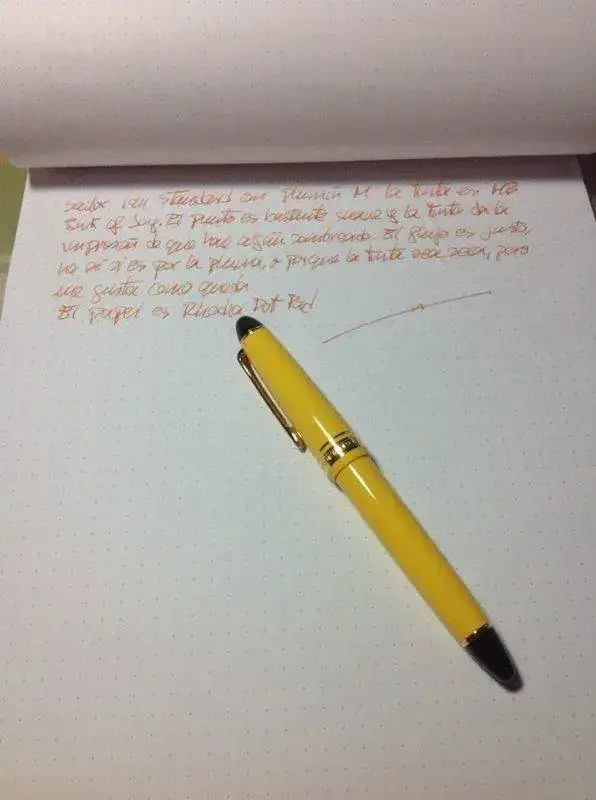 Sailor 1911 Standard con plumín M la tinta es MB
Ink of Joy. El punto es bastante suave y la tinta da la
impresión de que hace algún sombreado. El flujo es justo,
no sé si es por la pluma, o porque la tinta sea seca, pero
me gusta como queda.
El papel es Rhodia Dot Pad